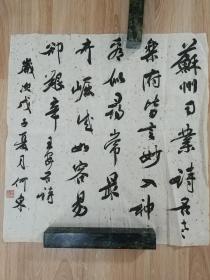 蘇州司業詩名老
樂府皆言妙入神
看似尋常最
奇崛成如容易
却艱辛 王安石詩
歲次戊子夏月何